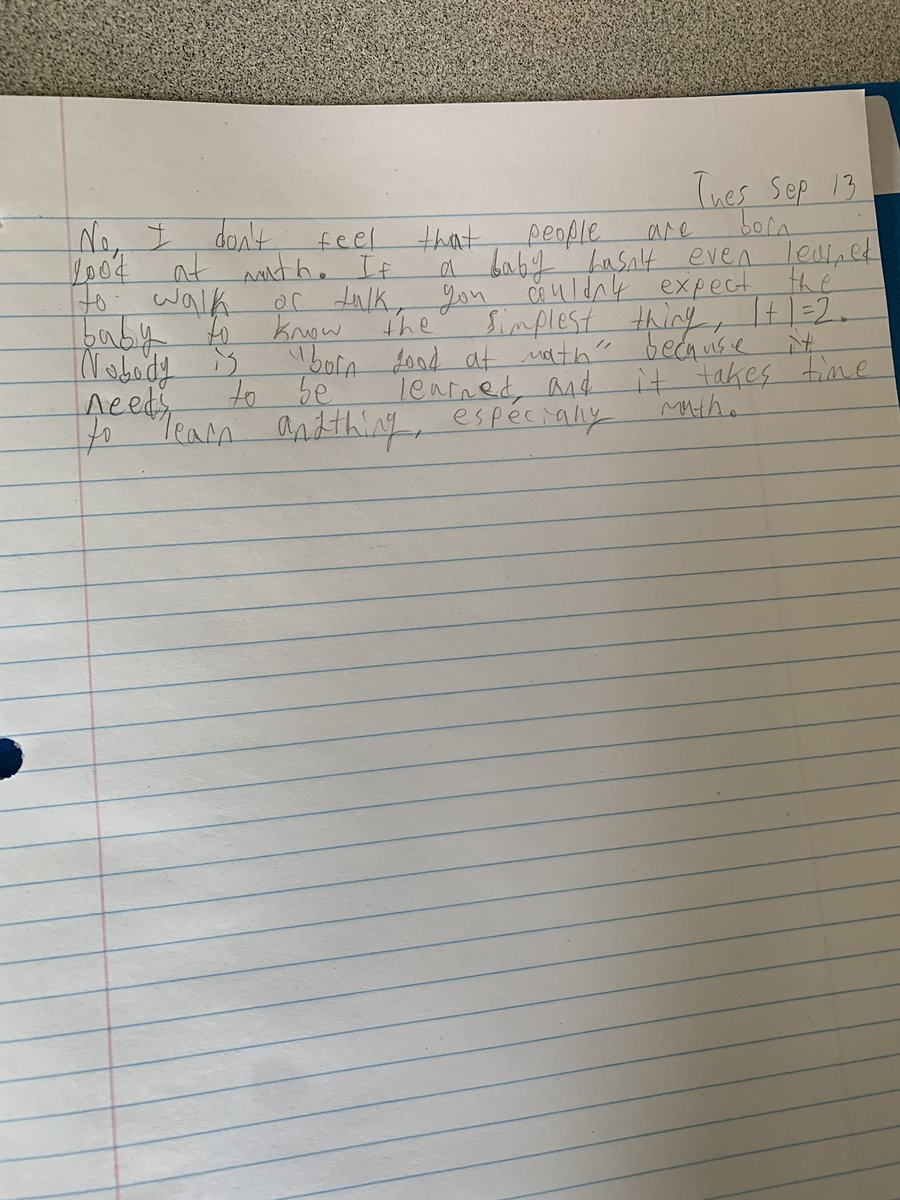 Tues Sep 13
No, I don't feel that people are born
good at math. If a baby hasn't even learned
to walk or talk, you couldn't expect the
baby to know the simplest thing, 1+1=2.
Nobody is "born good at math" because it
needs to be learned, and it takes time
to learn anything, especially math.